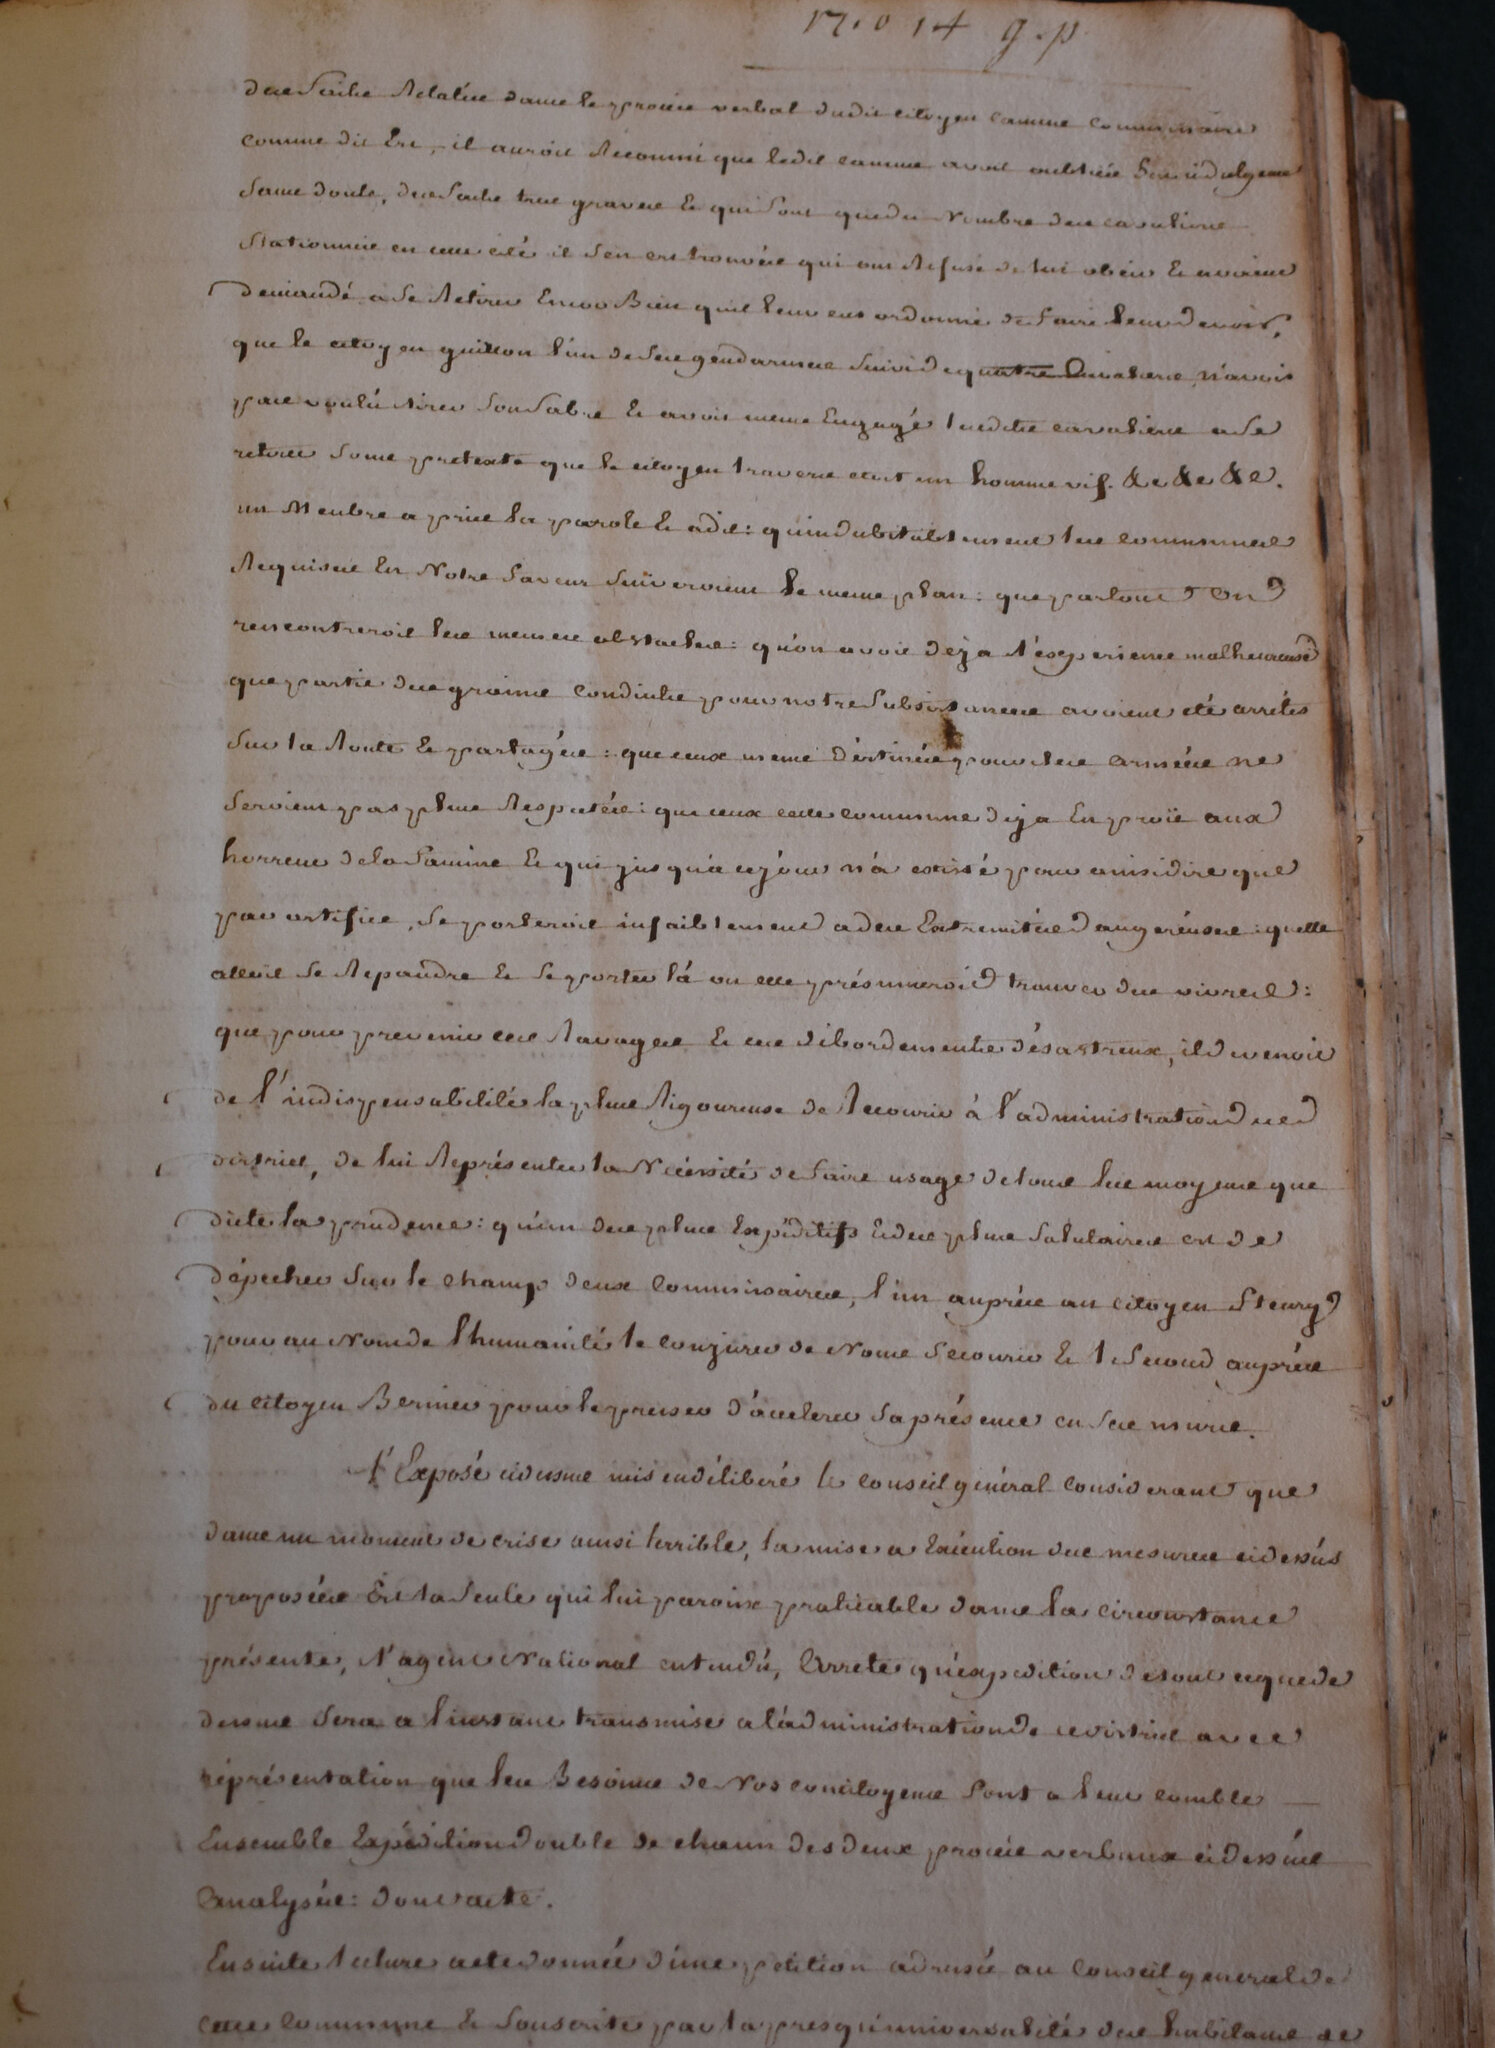 17.0 14 g.p
des faits Relatés dans le procès verbal dudit citoyen camus commissaire
comme dit Est, il auroit Reconnu que ledit camus avoit oublié par indulgence
sans doute, des faits très graves & qui sont que du Nombre des cavaliers
Stationnés en cette cité il s'en est trouvés qui ont Refusé de lui obéir & avoient
demandé à se Retirer Encor Bien qu'il leur eut ordonné de faire leur devoir,
que le citoyen guillon l'un de ses gendarmes suivi de quatre Cavaliers, n'avoit
pas voulu tirer son sabre & avoit meme Engagé lesdits cavaliers a se
retirer sous pretexte que le citoyen traverse etoit un homme vif. &c &c &c.
un Membre a pris la parole & a dit: qu'indubitablement les communes
Requises En Notre faveur suivroient le meme plan: que partout On
rencontreroit les memes obstacles: qu'on avoit deja l'éxperience malheureuse
que partie des grains conduits pour notre subsistance avoient été arrêtés
sur la Route & partagés: que ceux meme déstinés pour les armées ne
seroient pas plus Respectés: que cette commune deja En proïe aux
horreurs de la famine & qui jusqu'a ce jour n'a existé pour ainsi dire que
par artifice, se porteroit infailliblement a des Extremités dangereuses: quelle
alloit se Repandre & se porter là ou elle présumeroit trouver des vivres:
que pour prevenir ces Ravages & ces débordements désastreux, il devenoit
de l'indispensabilité la plus Rigoureuse de Recourir à l'administration du
district, de lui Représenter la Nécéssité de faire usage de tous les moyens que
dicte la prudence: qu'un des plus Expéditifs & des plus salutaires est de
dépecher sur le champ deux Commissaires, l'un auprès du citoyen fleury
pour au Nom de l'humanité le conjurer de Nous secourir & le second auprès
du citoyen Bernier pour le presser d'accelerer sa présence en ses murs.
L'Exposé cidessus mis en délibéré le Conseil général Considerant que
dans un moment de crise aussi terrible, la mise a Exécution des mesures cidessus
proposées Est la seule qui lui paroisse praticable dans la circonstance
présente, l'agent National entendu, Arrete qu'expedition de tout ce que de
dessus sera a l'instant transmise a l'administration de ce district avec
réprésentation que les Besoins de Nos concitoyens sont a leur comble
Ensemble Expédition double de chacun des deux procès verbaux ci dessus
Analysés: dont acte.
Ensuite lecture a eté donnée d'une petition adressée au Conseil general de
cette Commune & souscrite par la presqu'universalité des habitans de